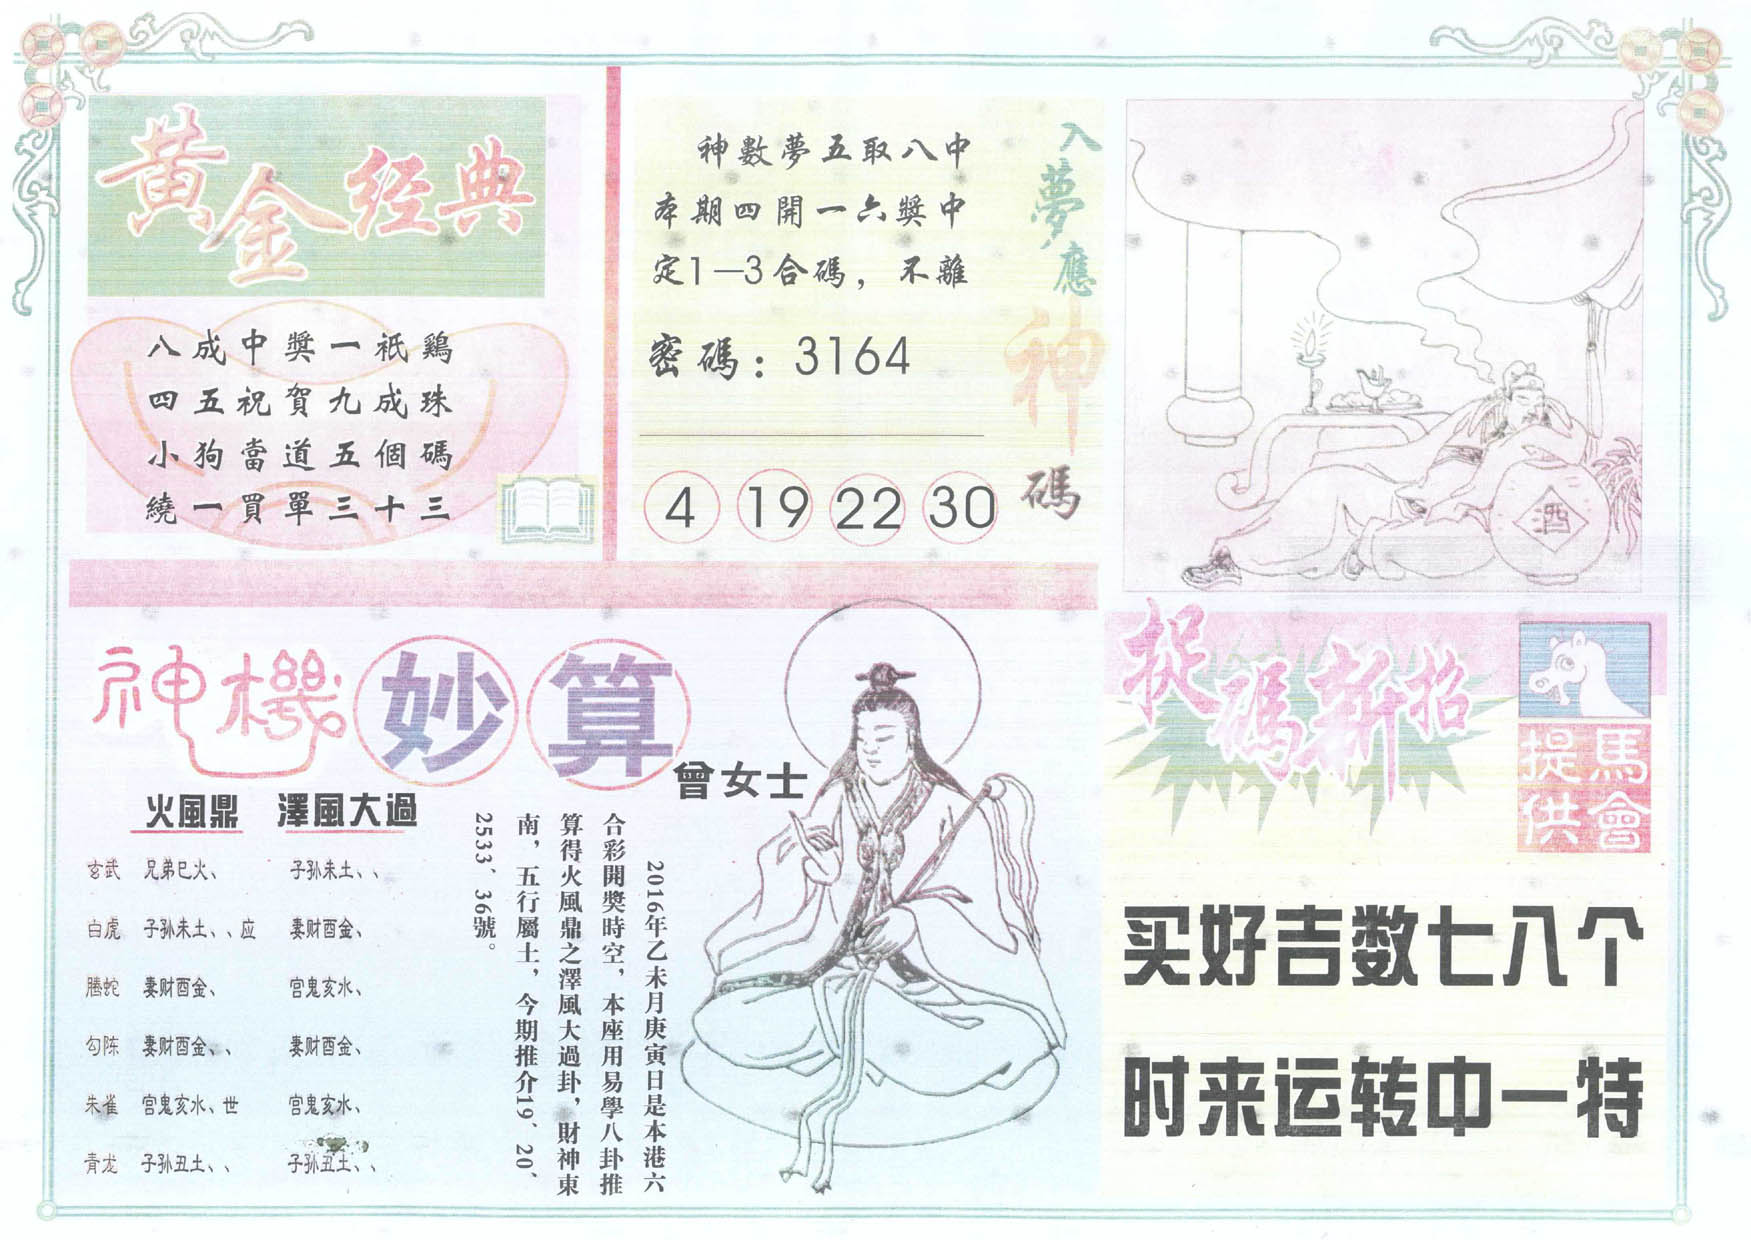 黄金经典
八成中獎一祇鷄
四五祝賀九成珠
小狗當道五個碼
繞一買單三十三
神數夢五取八中
本期四開一六獎中
定1—3合碼，不離
密碼：3164
4 19 22 30
入夢應神碼
酒
神機妙算
曾女士
火風鼎 澤風大過
玄武 兄弟巳火、 子孙未土、、
白虎 子孙未土、、应 妻财酉金、
螣蛇 妻财酉金、 官鬼亥水、
勾陈 妻财酉金、、 妻财酉金、
朱雀 官鬼亥水、世 官鬼亥水、
青龙 子孙丑土、、 子孙丑土、、
2016年乙未月庚寅日是本港六
合彩開獎時空，本座用易學八卦推
算得火風鼎之澤風大過卦，財神東
南，五行屬土，今期推介19、20、
2533、36號。
捉碼新招
馬會
提供
买好吉数七八个
时来运转中一特